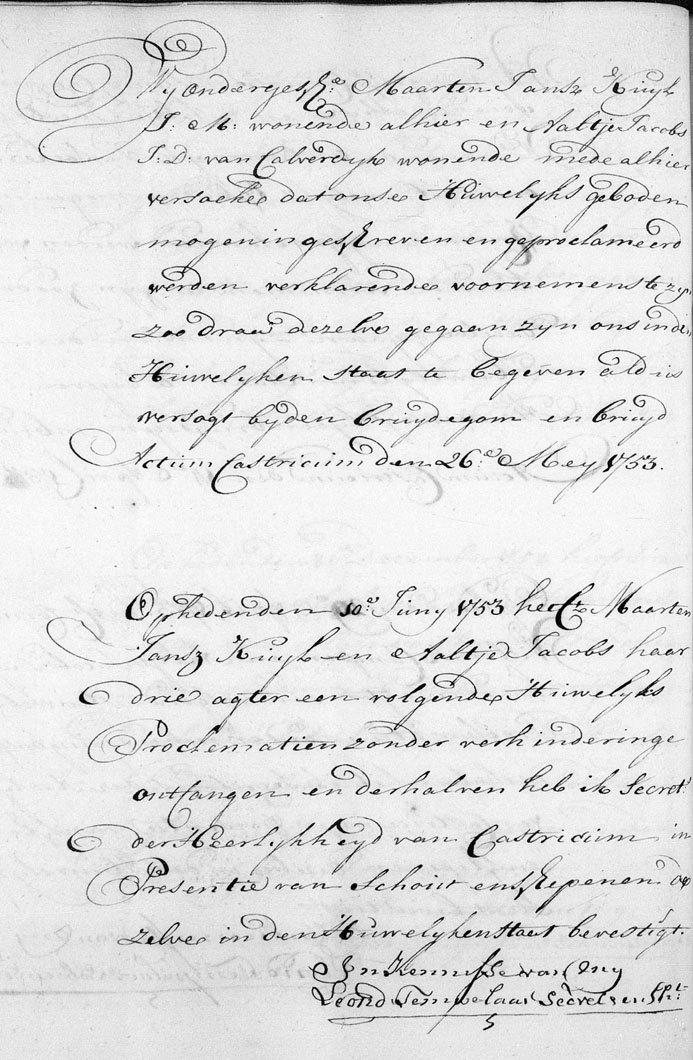 Wy ondergesch:e Maarten Jansz Kuyl
J: M: wonende alhier en Aaltje Jacobs
J: D: van Calverdyk wonende mede alhier
versoeke dat onse Huwelyks geboden
mogen ingeschreven en geproclameerd
werden verklarende voornemens te zyn
zoo draa dezelve gegaan zyn ons inden
Huwelyken staat te begeven ald is
versogt byden bruydegom en bruyd
Actum Castricum den 26:e Mey 1753.
Op heden den 10:e Juny 1753 hebb Maarten
Jansz Kuyl en Aaltje Jacobs haar
drie agter een volgende Huwelyks
Proclematien zonder verhinderinge
ontfangen en derhalven heb ik Secret:s
der Heerlykheyd van Castricum in
Presentie van Schout en Schepenen de
zelve in den Huwelyken staat bevestigt.
In Kennisse van my
Leond: Secret: en Sch:t